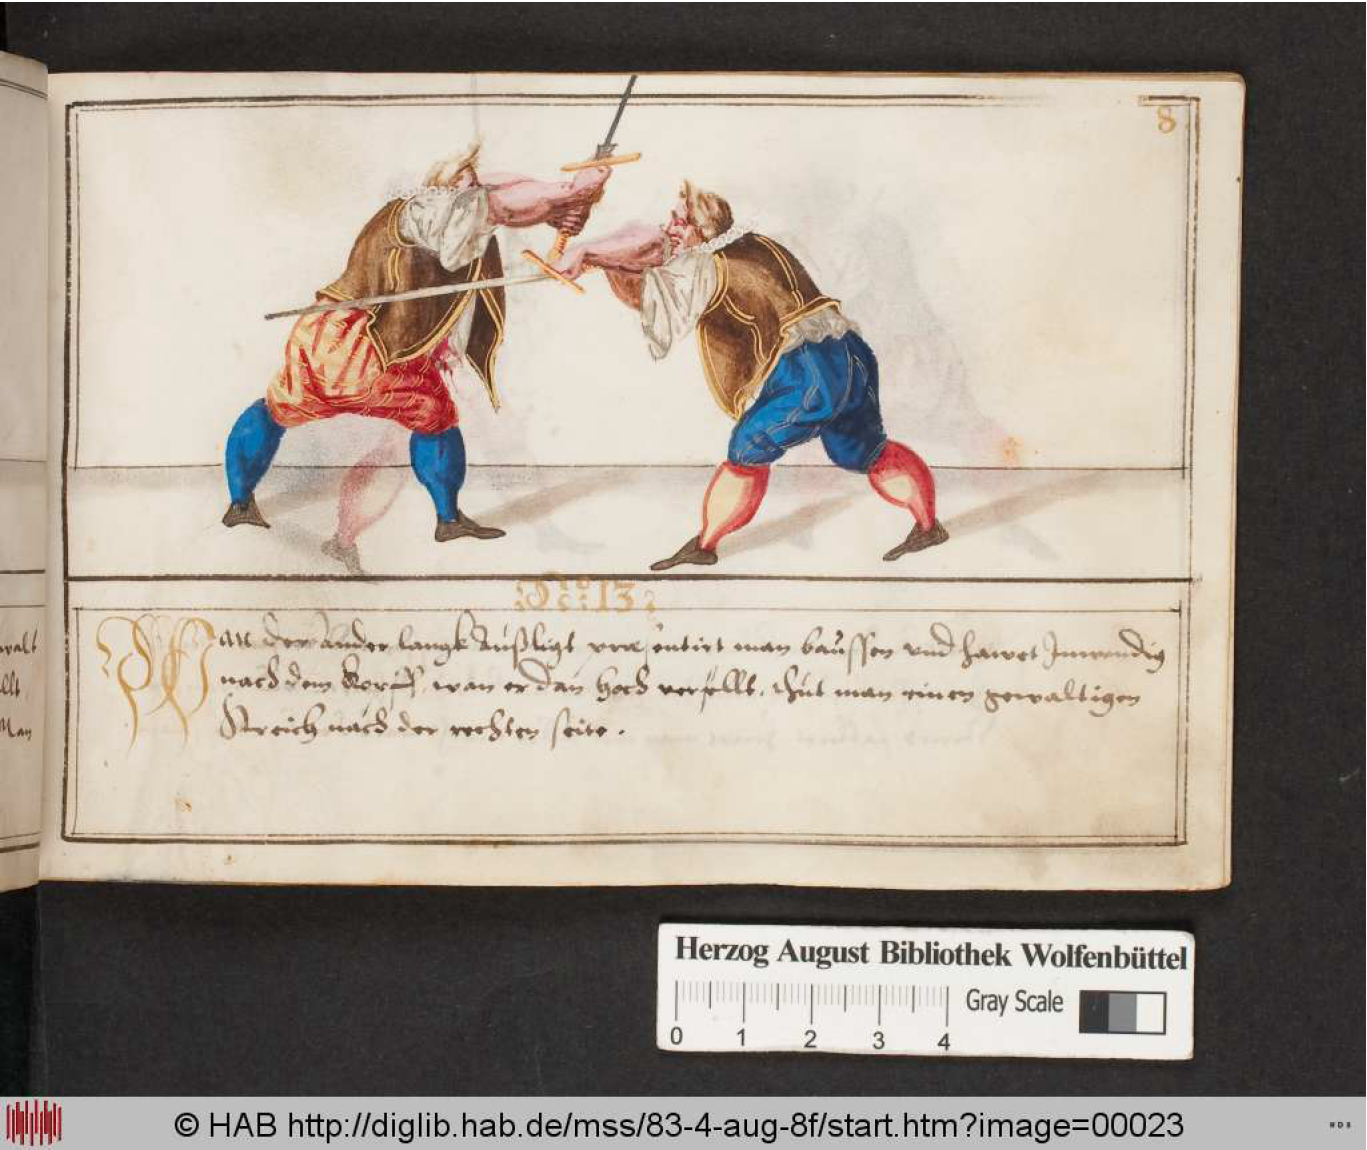 8
No: 13
Wan der ander langk außligt præsentirt man baussen und hawet Inwendig
nach dem Kopff, wan er dan hoch versellt, thut man einen gewaltigen
Streich nach der rechten seite.
walt
llt
Man
Herzog August Bibliothek Wolfenbüttel
0 1 2 3 4
Gray Scale
© HAB http://diglib.hab.de/mss/83-4-aug-8f/start.htm?image=00023